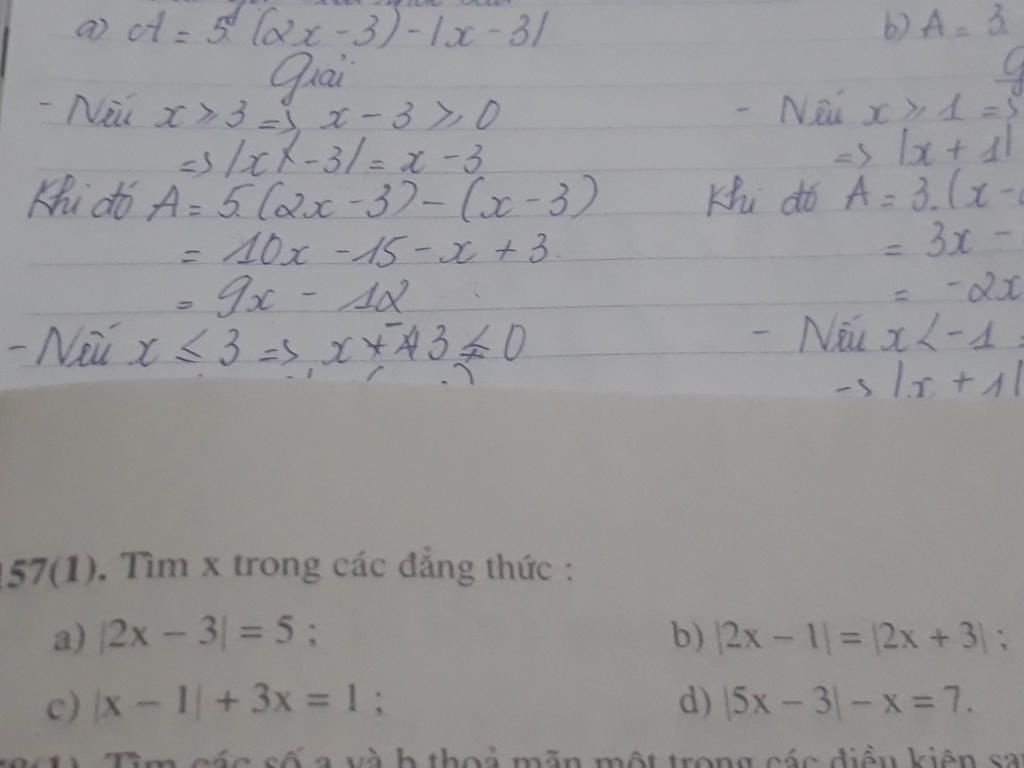 a) A = 5.(2x - 3) - |x - 3|
b) A = 3.
Giải
- Nếu x ≥ 3 => x - 3 ≥ 0
=> |x - 3| = x - 3
Khi đó A = 5.(2x - 3) - (x - 3)
= 10x - 15 - x + 3
= 9x - 12
- Nếu x ≤ 3 => x - 3 ≤ 0
- Nếu x ≥ 1 =>
=> |x + 1|
Khi đó A = 3.(x -
= 3x -
= -2x
- Nếu x < -1
=> |x + 1|
157(1). Tìm x trong các đẳng thức :
a) |2x - 3| = 5 ;
b) |2x - 1| = |2x + 3| ;
c) |x - 1| + 3x = 1 ;
d) |5x - 3| - x = 7.
Tìm các số a và b thoả mãn một trong các điều kiện